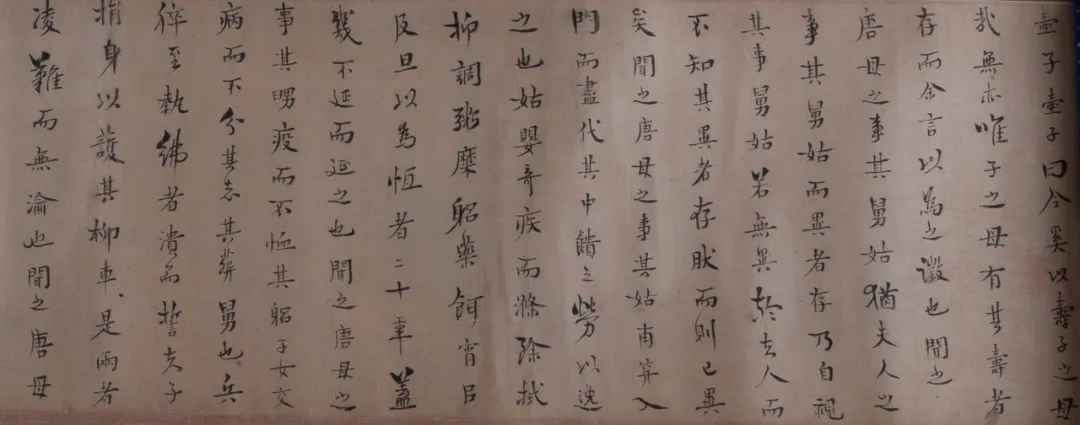 壺子壺子曰今奚以壽子之母
哉無亦唯子之母有其壽者
存而余言以為之徵也聞之
唐母之事其舅姑猶夫人之
事其舅姑而異者存乃自視
其事舅姑若無異於夫人而
不知其異者存肰而則已異
矣聞之唐母之事其姑甫笄入
門而盡代其中饋之勞以逸
之也姑嬰奇疾而滌除拭
抑調粥糜躬藥餌宵臼
及旦以為恒者二十年蓋
幾不延而延之也聞之唐母之
事其嬰疫而不恤其躬子女交
病而不分其志其葬舅也兵
猝至執紼者潰而誓夫子
捐身以護其柳車是兩者
凌難而無淪也聞之唐母